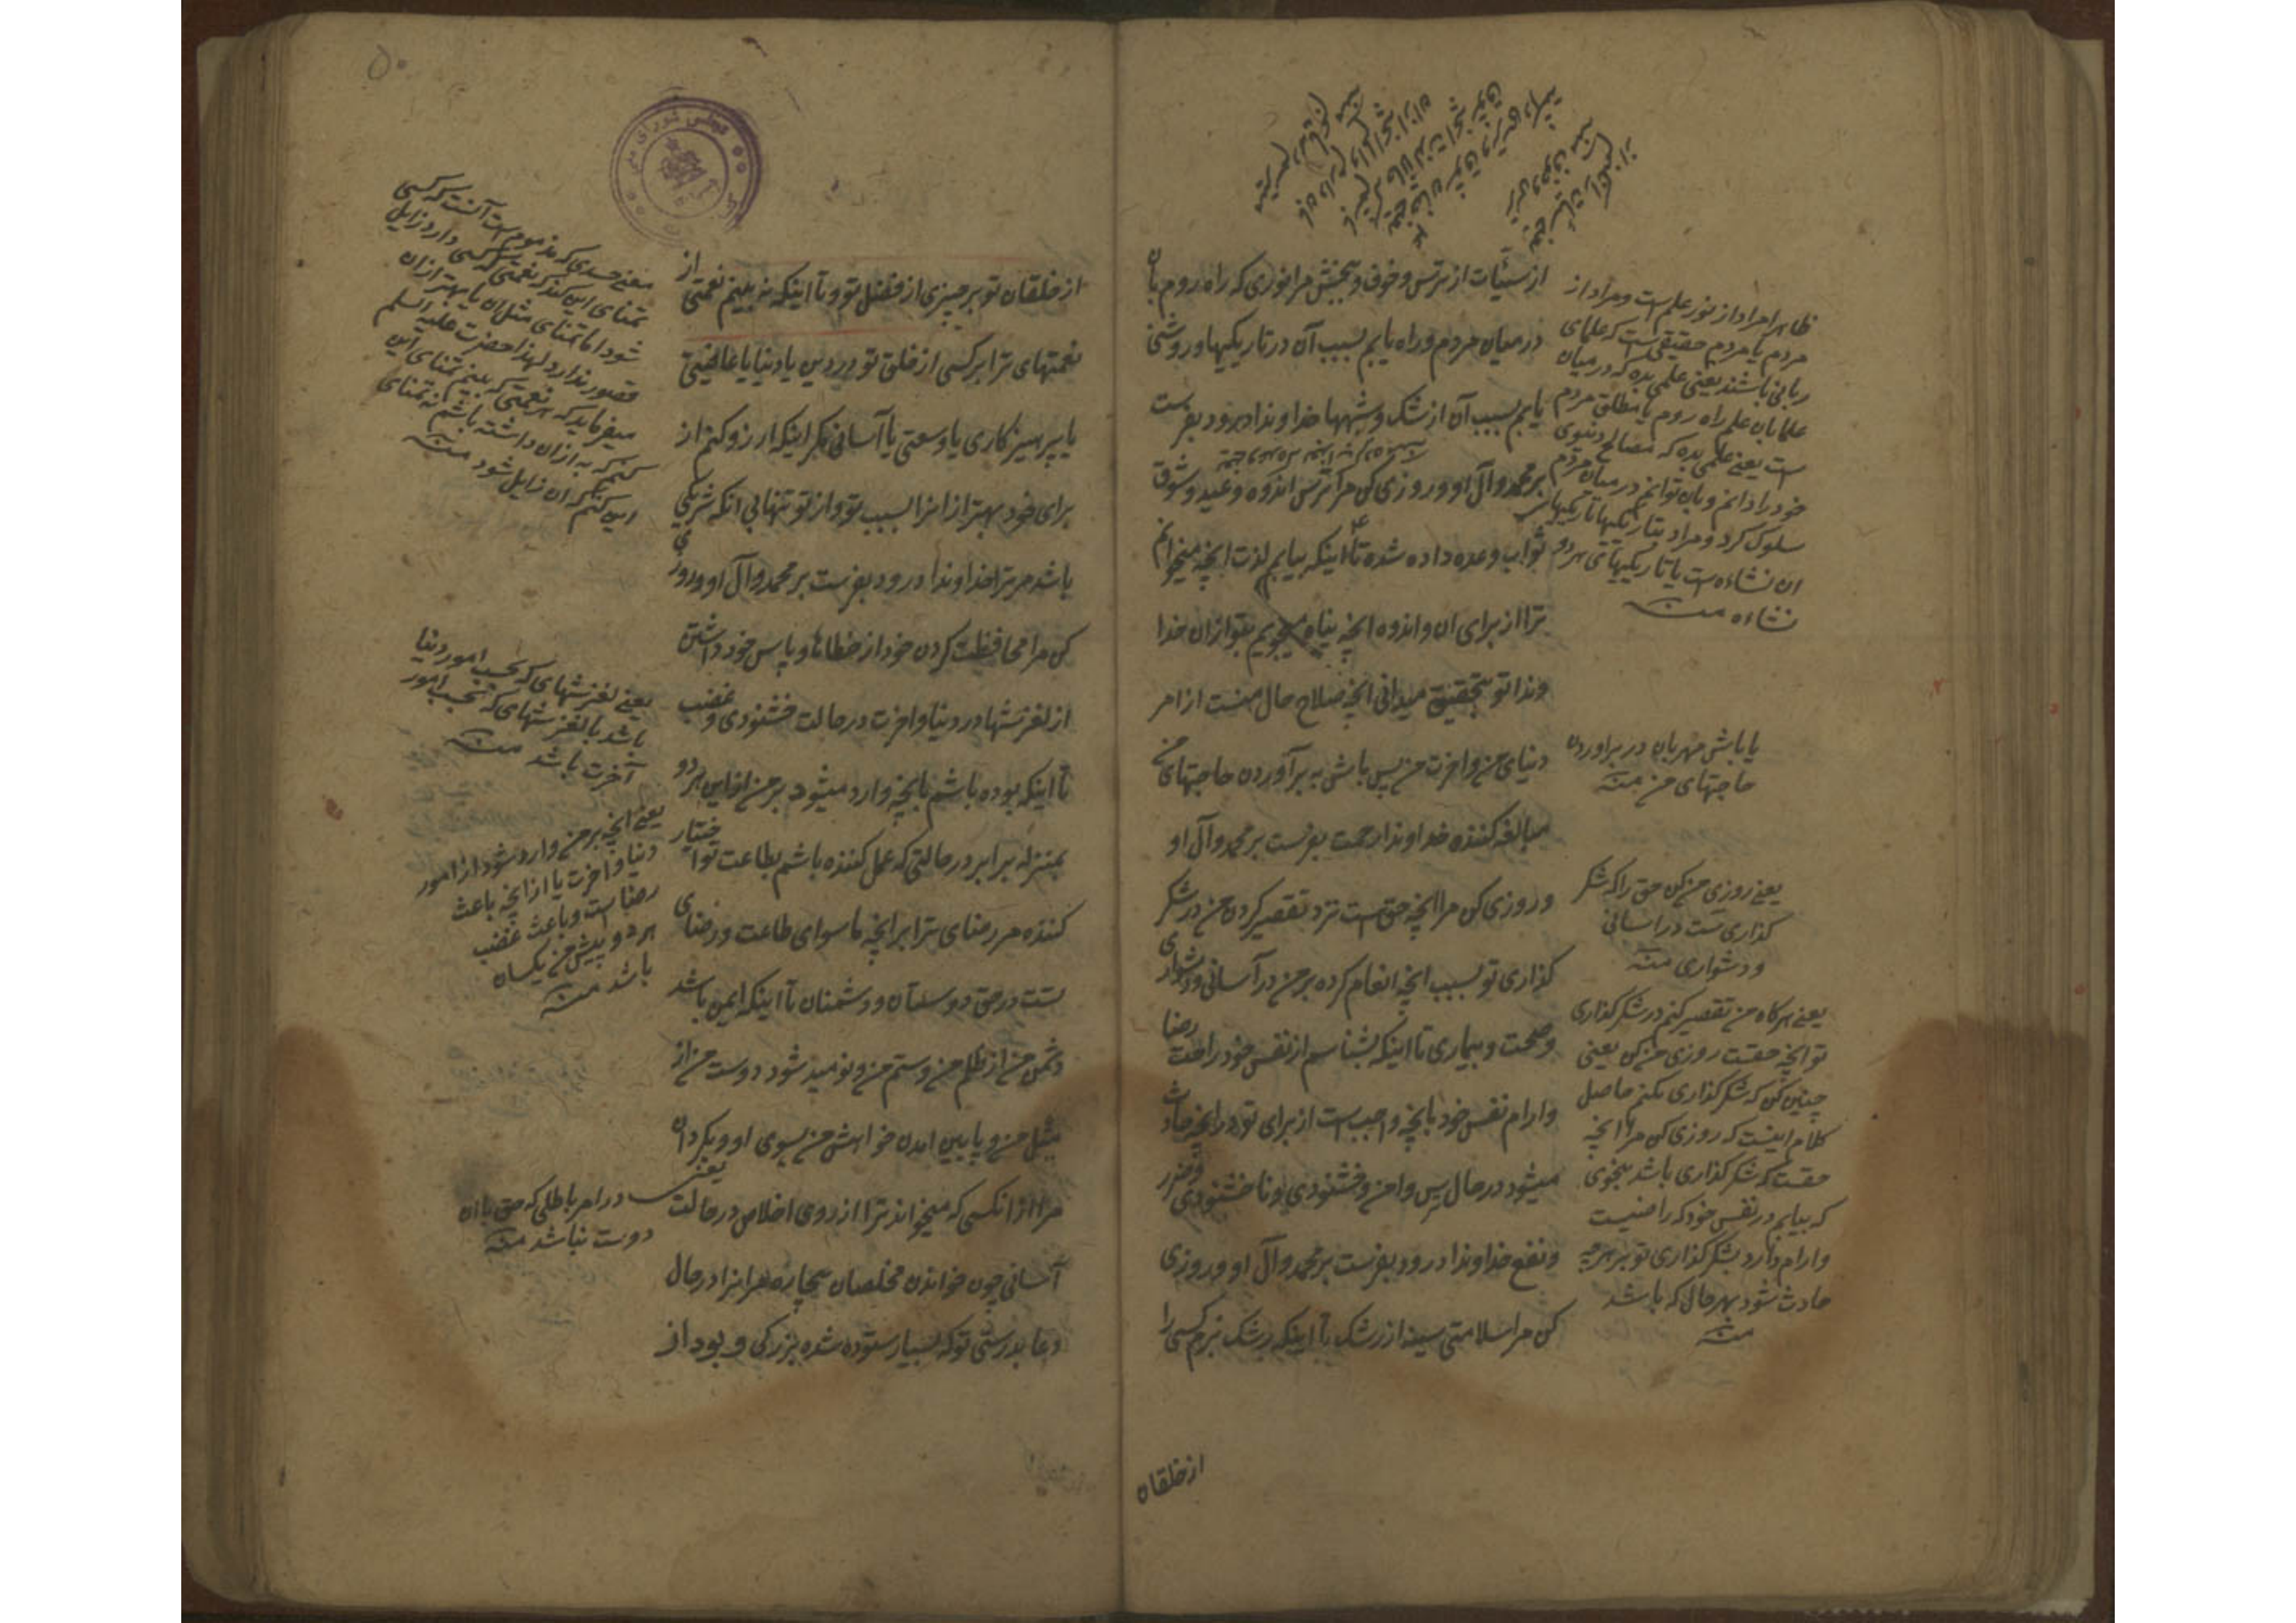 از سیّئات از ترس و خوف و ببخش مرا نوری که راه روم بآن
در میان مردم و راه یابم بسبب آن در تاریکیها و روشنی
یابم بسبب آن از شک و شبهها خداوندا درود بفرست
بر محمد و آل او و روزی کن مرا ترس اندوه وعید و شوق
ثواب وعده داده شده تا اینکه بیابم لذت آنچه میخوانم
ترا از برای آن و اندوه آنچه پناه میجویم بتو از آن خدا
وندا تو بتحقیق میدانی آنچه صلاح حال منست از امر
دنیای من و آخرت من پس باش به برآوردن حاجتهای من
مبالغه کننده خداوندا رحمت بفرست بر محمد و آل او
و روزی کن مرا آنچه حق است نزد تقصیر کردن من در شکر
گذاری تو بسبب آنچه انعام کرده بر من در آسانی و دشواری
و صحت و بیماری تا اینکه بشناسم از نفس خود راحت رضا
و ارام نفس خود بآنچه واجب است از برای تو در آنچه حادث
میشود در حال ترس و امن و خشنودی و ناخشنودی و ضرر
و نفع خداوندا درود بفرست بر محمد و آل او و روزی
کن مرا سلامتی سینه از رشک تا اینکه رشک نبرم کسی را
ظاهرا مراد از نور علم است و مراد از
مردم یا مردم حقیقی است که علمای
ربانی باشند یعنی علمی بده که در میان
علما بان علم راه روم یا مطلق مردم
است یعنی علمی بده که مصالح دنیوی
خود را دانم و بان توانم در میان مردم
سلوک کرد و مراد بتاریکیها تاریکیهای
ان نشاءه است یا تاریکیهای هر دو
نشاءه منه
یا باش مهربان در براوردن
حاجتهای من منه
یعنی روزی من کن حق را که شکر
گذاری تست در اسانی
و دشواری منه
یعنی هرگاه من تقصیر کنم در شکر گذاری
تو آنچه حقست روزی من کن یعنی
چنین کن که شکر گذاری بکنم حاصل
کلام اینست که روزی کن مرا آنچه
حقست که شکر گذاری باشد بنحوی
که بیابم در نفس خود که راضیست
و ارام دارد بشکر گذاری تو بر هرچه
حادث شود بهر حال که باشد
منه
از خلقان
۵۰
از خلقان تو بر چیزی از فضل تو و تا اینکه نه بینم نعمتی از
نعمتهای ترا بر کسی از خلق تو در دین یا دنیا یا عافیتی
یا پرهیزکاری یا وسعتی یا آسانی مگر اینکه ارزو کنم از
برای خود بهتر از انرا بسبب تو و از تو تنهایی انکه شریکی
باشد مر ترا خداوندا درود بفرست بر محمد و آل او و روزی
کن مرا محافظت کردن خود از خطاها و پاس خود داشتن
از لغزشها در دنیا و اخرت در حالت خشنودی و غضب
تا اینکه بوده باشم بآنچه وارد میشود بر من از این هر دو
بمنزله برابر در حالتی که عمل کننده باشم بطاعت تو اختیار
کننده مر رضای ترا بر آنچه ماسوای طاعت و رضای
تست در حق دوستان و دشمنان تا اینکه ایمن باشد
دشمن من از ظلم من و ستم من و نومید شود دوست من از
میل من و پایین امدن خواهش من بسوی او و بگردان
مرا از انکسی که میخواند ترا از روی اخلاص در حالت
آسانی چون خواندن مخلصان بیچاره مر ترا در حال
دعا بدرستی تو که بسیار ستوده شده بزرگی و بود از
معنی حسدی که مذموم است آنست که کسی
تمنای این کند که نعمتی که کسی دارد زایل
شود اما تمنای مثل ان یا بهتر از ان
قصور ندارد لهذا حضرت علیه السلم
میفرماید که هر نعمتی که بینم تمنای این
کنم که به از ان داشته باشم نه تمنای
این کنم که ان زایل شود منه
یعنی لغزشهای که بحسب امور دنیا
باشد یا لغزشهای که بحسب امور
آخرت باشد منه
یعنی آنچه بر من وارد شود از امور
دنیا و اخرت یا از آنچه باعث
رضا است و باعث غضب
هر دو پیش من یکسان
باشد منه
یعنی در امر باطلی که حق با ان
دوست نباشد منه